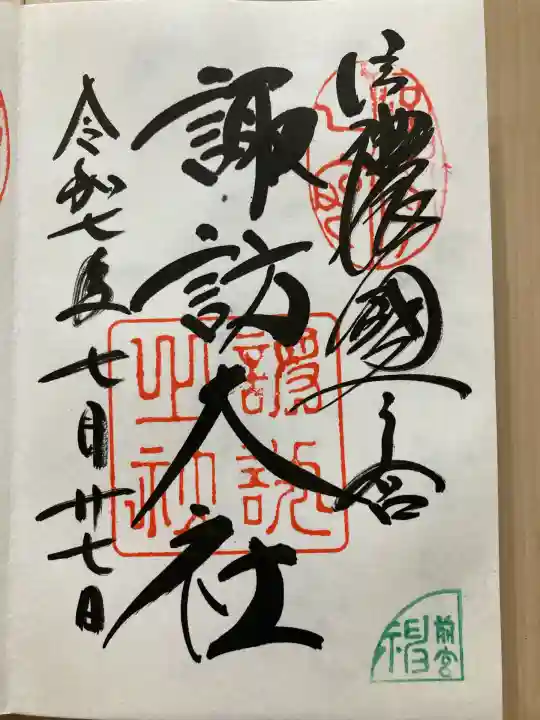 信濃國一之宮
諏訪大社
令和七年七月廿七日
前宮